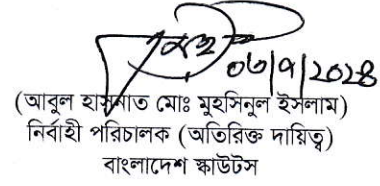 ০৩/৭/২০২৪
(আবুল হাসনাত মোঃ মুহসিনুল ইসলাম)
নির্বাহী পরিচালক (অতিরিক্ত দায়িত্ব)
বাংলাদেশ স্কাউটস